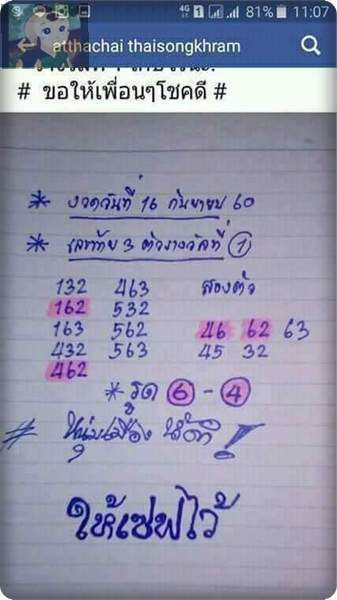 4G 1 81% 11:07
atthachai thaisongkhram
# ขอให้เพื่อนๆโชคดี #
* งวดวันที่ 16 กันยายน 60
* เลขท้าย 3 ตัวรางวัลที่ 1
132 463 สองตัว
162 532
163 562 46 62 63
432 563 45 32
462
* รูด 6 - 4
# หนุ่มเมือง !
ให้เซฟไว้